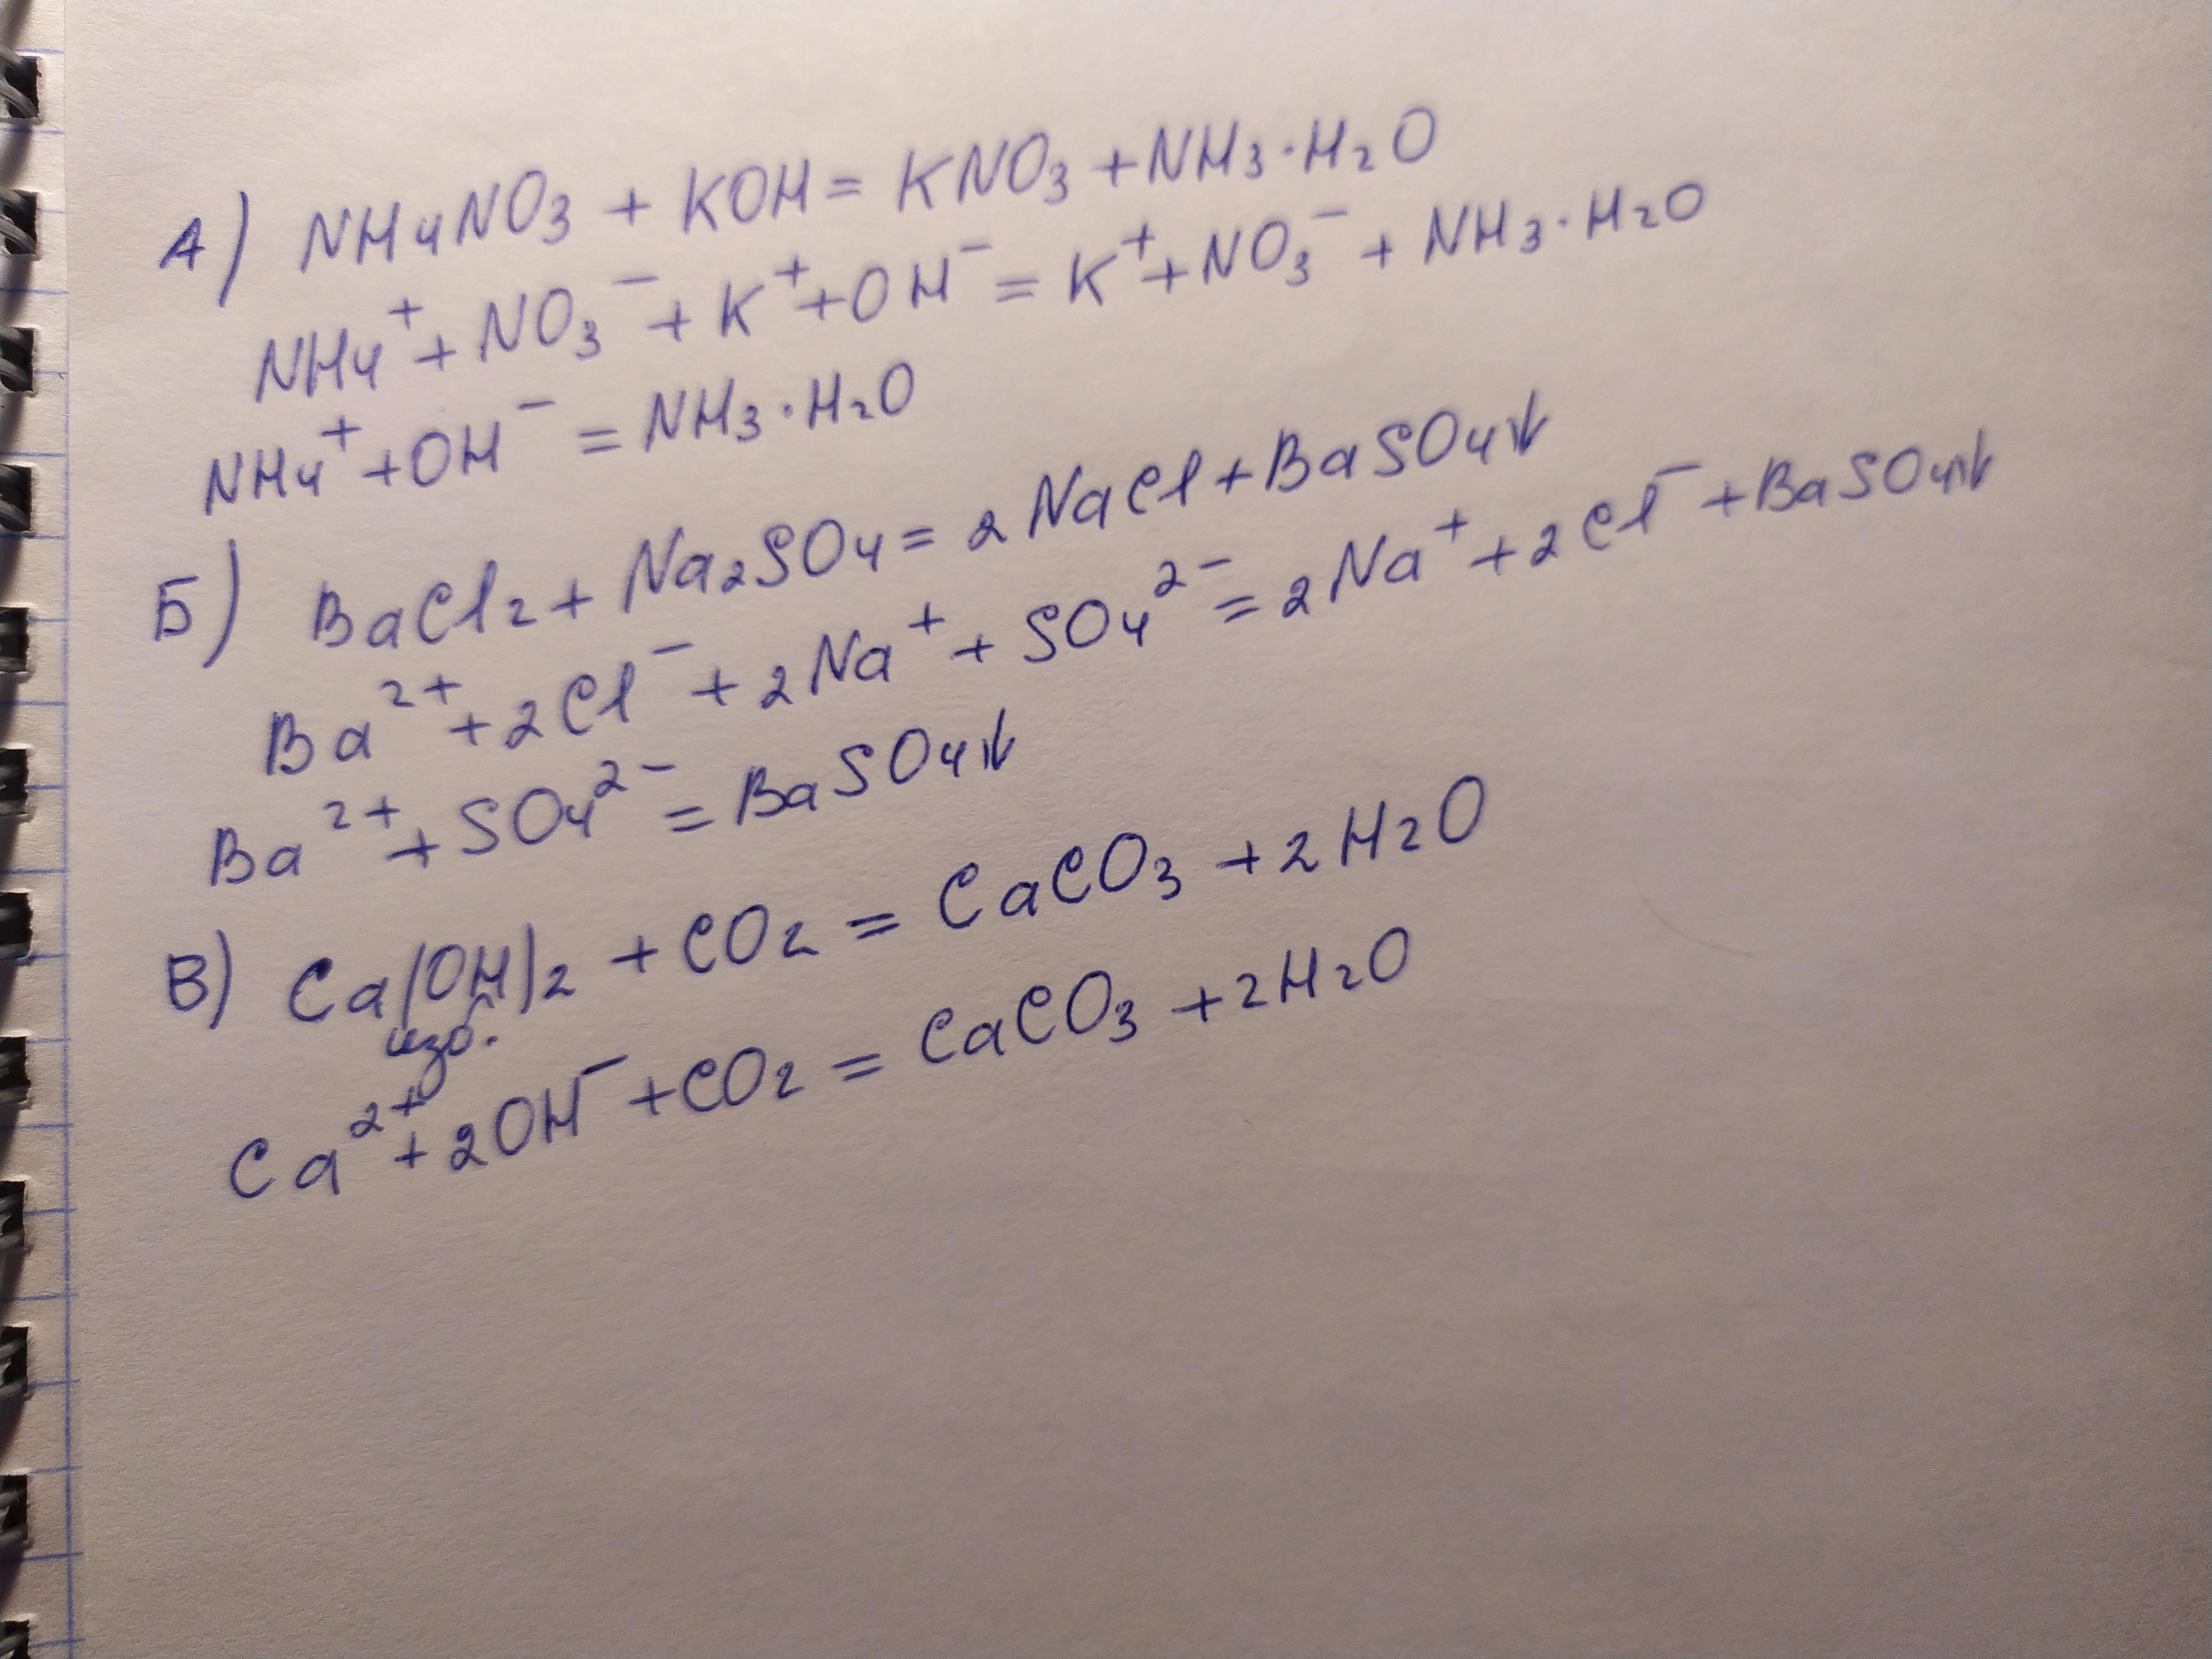 А) NH₄NO₃ + KOH = KNO₃ + NH₃·H₂O
NH₄⁺ + NO₃⁻ + K⁺ + OH⁻ = K⁺ + NO₃⁻ + NH₃·H₂O
NH₄⁺ + OH⁻ = NH₃·H₂O
Б) BaCl₂ + Na₂SO₄ = 2NaCl + BaSO₄↓
Ba²⁺ + 2Cl⁻ + 2Na⁺ + SO₄²⁻ = 2Na⁺ + 2Cl⁻ + BaSO₄↓
Ba²⁺ + SO₄²⁻ = BaSO₄↓
В) Ca(OH)₂ + CO₂ = CaCO₃ + 2H₂O
изб.
Ca²⁺ + 2OH⁻ + CO₂ = CaCO₃ + 2H₂O